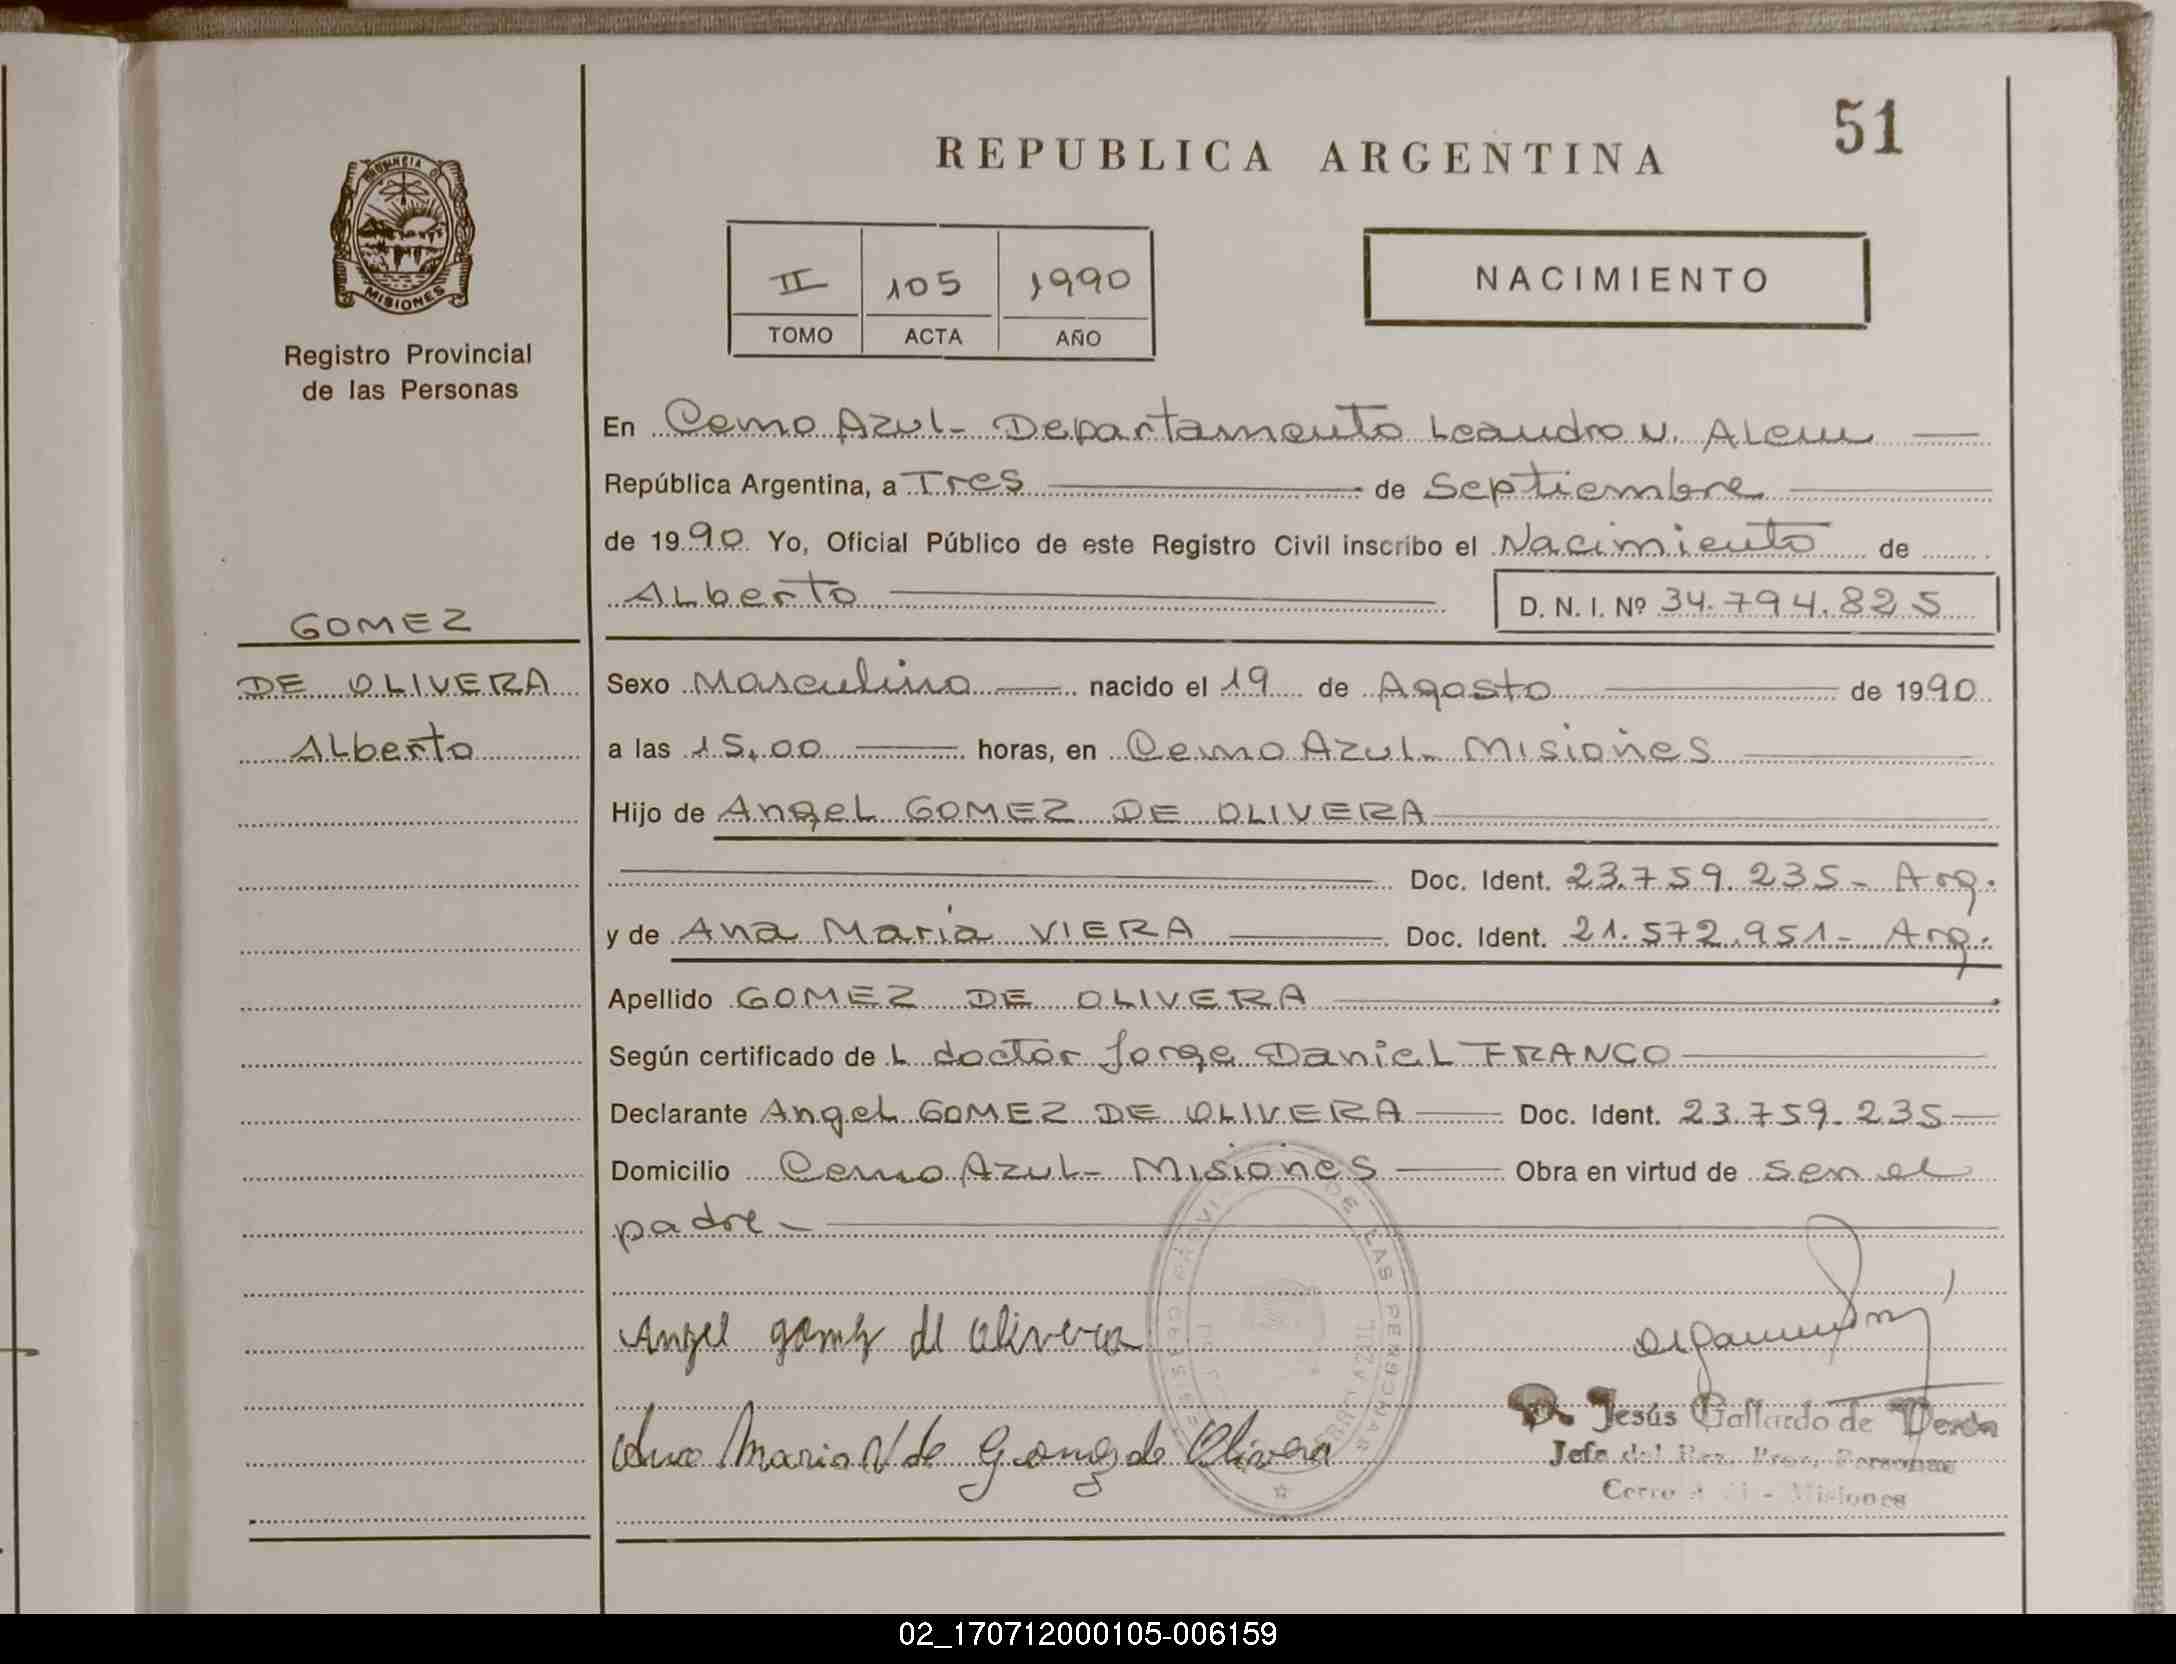 51
REPUBLICA ARGENTINA
PROVINCIA D
MISIONES
Registro Provincial
de las Personas
NACIMIENTO
II 105 1990
TOMO ACTA AÑO
En Cerro Azul- Departamento Leandro N. Alem
República Argentina, a Tres de Septiembre
de 1990 Yo, Oficial Público de este Registro Civil inscribo el Nacimiento de
Alberto D. N. I. Nº 34.794.825
GOMEZ
DE OLIVERA
Alberto
Sexo Masculino nacido el 19 de Agosto de 1990
a las 15,00 horas, en Cerro Azul- Misiones
Hijo de Angel GOMEZ DE OLIVERA
Doc. Ident. 23.759.235- Arg.
y de Ana Maria VIERA Doc. Ident. 21.572.951- Arg.
Apellido GOMEZ DE OLIVERA
Según certificado de L doctor Jorge Daniel FRANCO
Declarante Angel GOMEZ DE OLIVERA Doc. Ident. 23.759.235
Domicilio Cerro Azul- Misiones Obra en virtud de ser el
padre-
Angel gomez de olivera
Ana Maria V de Gomez de Olivera
DE LAS PERSONAS
Jesús Gallardo de
Jefe del Reg. Prov. Personas
Cerro Azul - Misiones
02_170712000105-006159